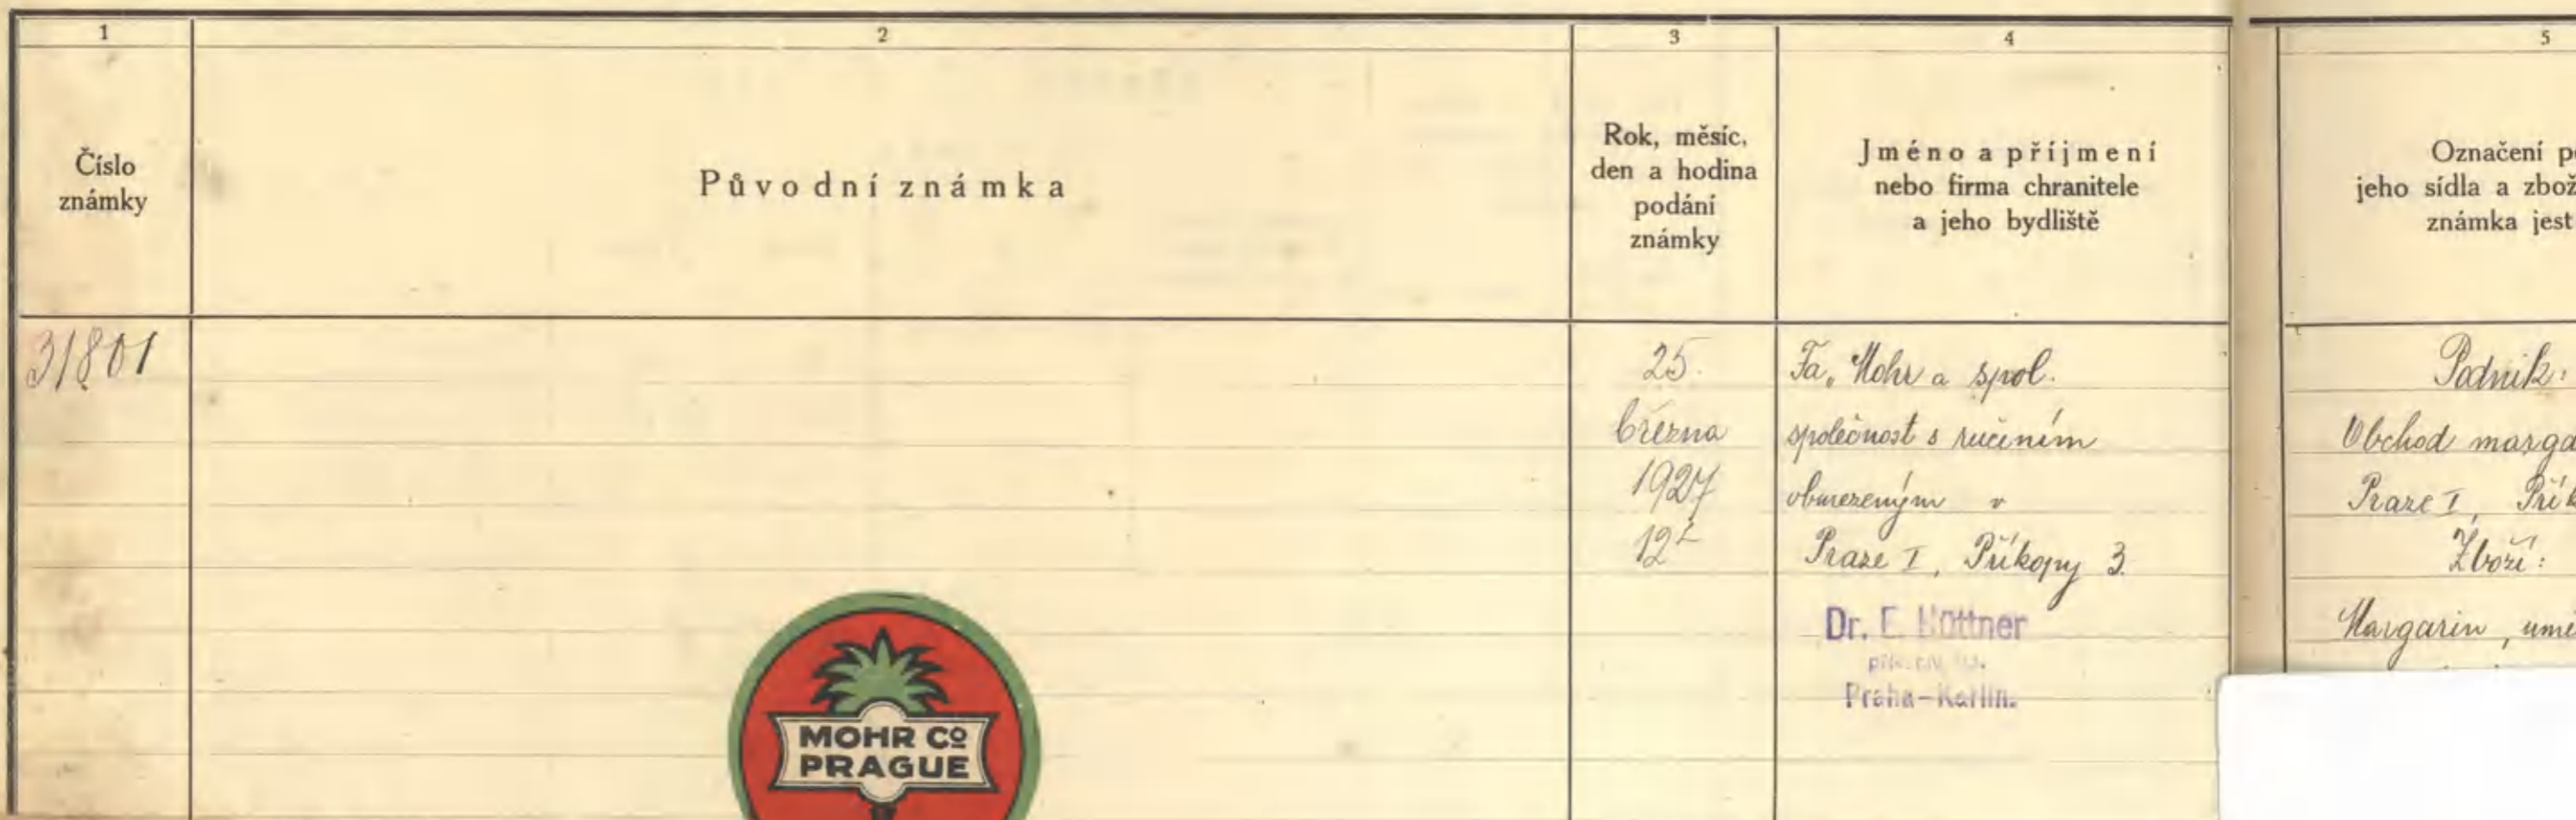 1
2
3
4
5
Číslo
známky
Původní známka
Rok, měsíc,
den a hodina
podání
známky
Jméno a příjmení
nebo firma chranitele
a jeho bydliště
Označení
jeho sídla a
známka jest
31801
25.
března
1927
12
Fa. Mohr a spol.
společnost s ručením
obmezeným v
Praze I, Příkopy 3.
Dr. E.
Praha-Karlín.
MOHR Cº
PRAGUE
Podnik:
Obchod
Praze I,
Zboží:
Margarin,